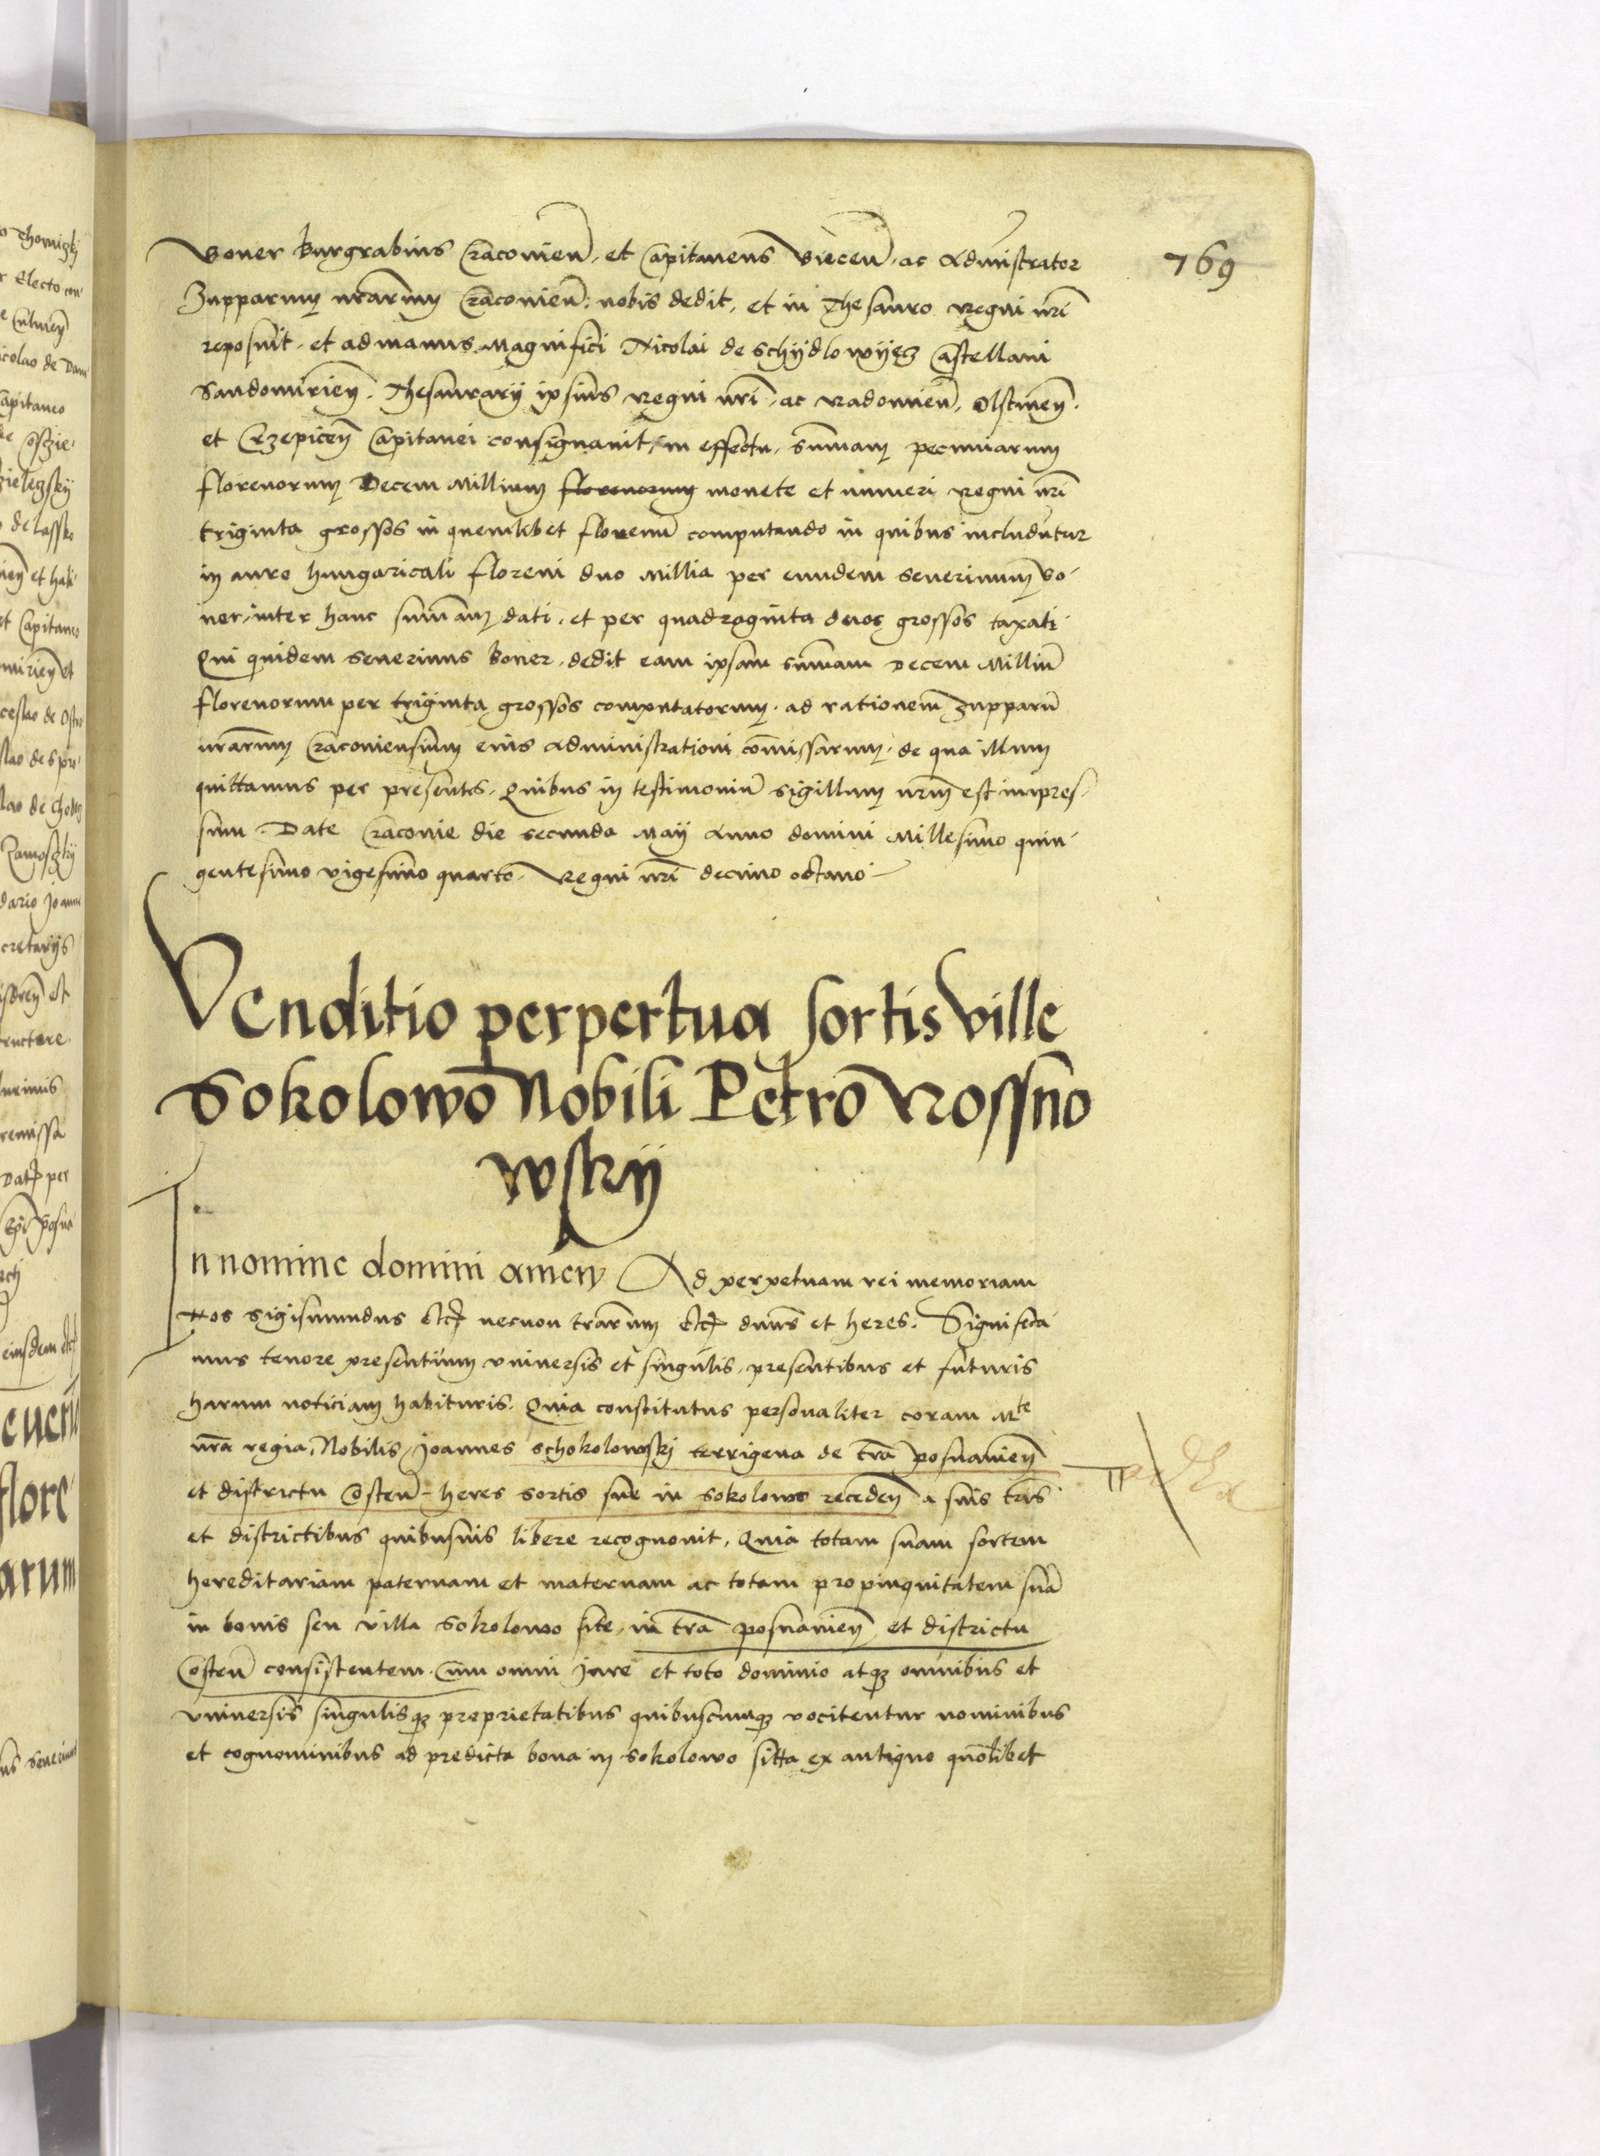 769
Boner Burgrabius Cracovien̄. et Capitaneus Biecen̄. ac Admīstrator
Zupparum nr̄arum Cracovien̄. nobis dedit, et in Thesauro Regni nr̄i
reposuit. et ad manus Magnifici Nicolai de Schydlowyecz Castellani
Sandomirien̄. Thesaurarij ipsius Regni nr̄i, ac Radomien̄. Olstinen̄.
et Crzepicen̄ Capitanei consignavit, in effectu, summam pecuniarum
florenorum Decem Millium florenorum monete et numeri Regni nr̄i
triginta grossos in quemlibet florenū computando in quibus includūtur
in auro hungaricali floreni duo Millia per eundem Severinum Bo-
ner, inter hanc summam dati, et per quadraginta duos grossos taxati
Qui quidem Severinus Boner, dedit eam ipsam sum̄am Decem Milliū
florenorum per triginta grossos computatorum. ad rationem zupparū
nr̄arum Cracoviensium eius administrationi com̄issarum. de qua illum
quittamus per presentes. Quibus in testimoniū sigillum nr̄um est impres-
sum. Date Cracovie die secunda Maij Anno domini Millesimo quin-
gentesimo vigesimo quarto. Regni nr̄i decimo octavo
Venditio perpertua sortis ville
Sokolowo Nobili Petro Rossno
wskij
In nomine domini amen Ad perpetuam rei memoriam
Nos Sigismundus etc̄ necnon trārum etc̄ dn̄us et heres. Significa
mus tenore presentium universis et singulis, presentibus et futuris
harum noticiam habituris. Quia constitutus personaliter coram Mte
nr̄a regia, Nobilis Joannes Schokolowski terrigena de trā posnanien̄
et districtu Costen̄ heres sortis sue in Sokolowo receden̄ a suis trīs
et districtibus quibusvis libere recognovit, Quia totam suam sortem
hereditariam paternam et maternam ac totam propinquitatem suā
in bonis seu villa Sokolowo site, in trā posnanien̄ et districtu
Costen̄ consistentem. Cum omni jure et toto dominio atq3 omnibus et
universis singulisq3 proprietatibus quibuscumq3 vocitentur nominibus
et cognominibus ad predicta bona in Sokolowo sitta ex antiquo quōlibet